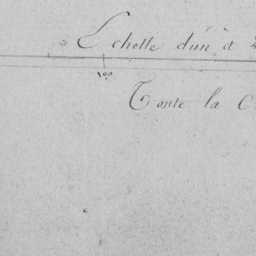 Echelle d'un à
100
Toute la C